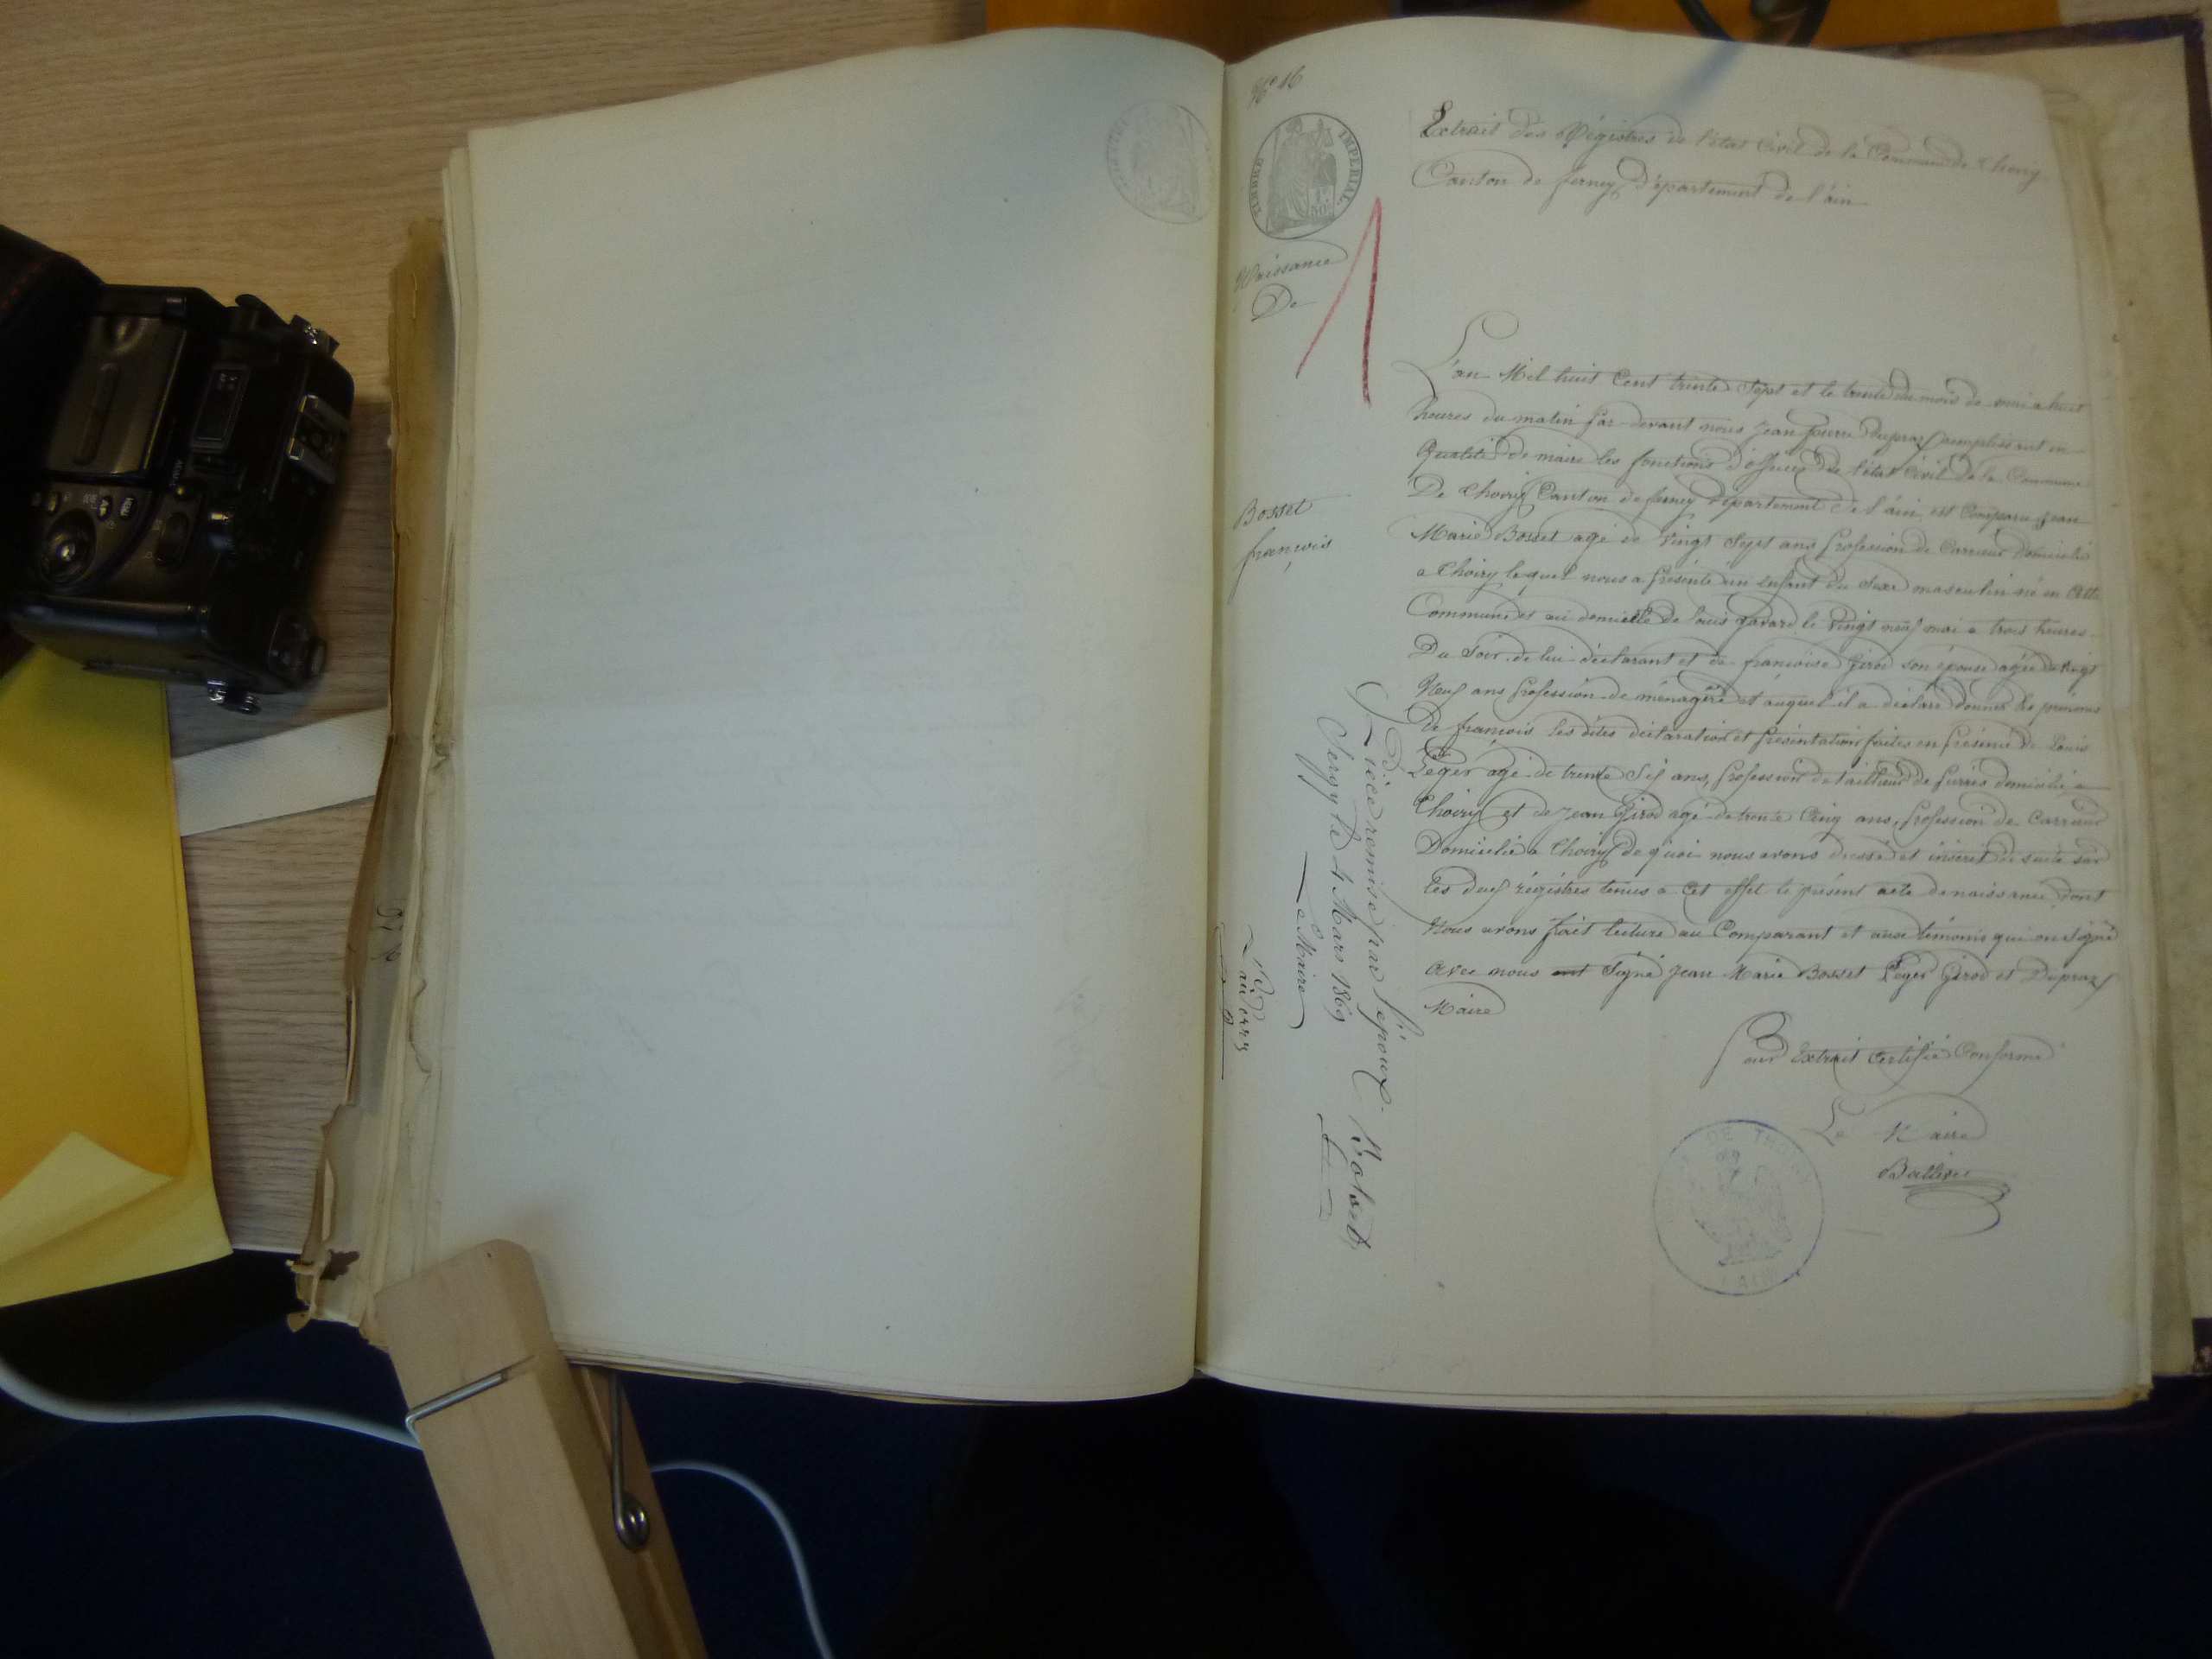 Nº 16
TIMBRE IMPERIAL
Extrait des Régistres de l'état Civil de la Commune de Thoiry
Canton de ferney département de l'ain
Naissance
De
Bosset
françois
L'an Mil huit Cent trente Sept et le trente du mois de mai a huit
heures du matin par devant nous Jean pierre Dupraz remplissant en
Qualité de maire les fonctions d'officier de l'état Civil de la Commune
De Thoiry Canton de ferney département de l'ain est Comparu Jean
Marie Bosset agé de Vingt Sept ans profession de Carrieur domicilié
a Thoiry lequel nous a présenté un enfant du Sexe masculin né en Cette
Commune et au domicile de Louis gavard le Vingt neuf mai a trois heures
Du Soir de lui déclarant et de françoise Girod son épouse agée de Vingt
Neuf ans profession de ménagère et auquel il a déclaré donner les prénoms
De françois les dites déclaration et présentation faites en présence de Louis
Leger agé de trente Six ans, profession de tailleur de pierres domicilié a
Thoiry et de Jean Girod agé de trente Cinq ans, profession de Carrieur
Domicilié a Thoiry de quoi nous avons dressé et inscrit de suite sur
les deux régistres tenus a Cet effet le présent acte de naissance dont
Nous avons fait lecture au Comparant et aux témoins qui on signé
avec nous ont Signé Jean Marie Bosset Leger Girod et Dupraz
Maire
Pour Extrait Certifié Conforme
Le Maire
DE THOIRY
L'AIN
Pièce remise par l'époux
Sergy le 4 Mars 1869
Le Maire